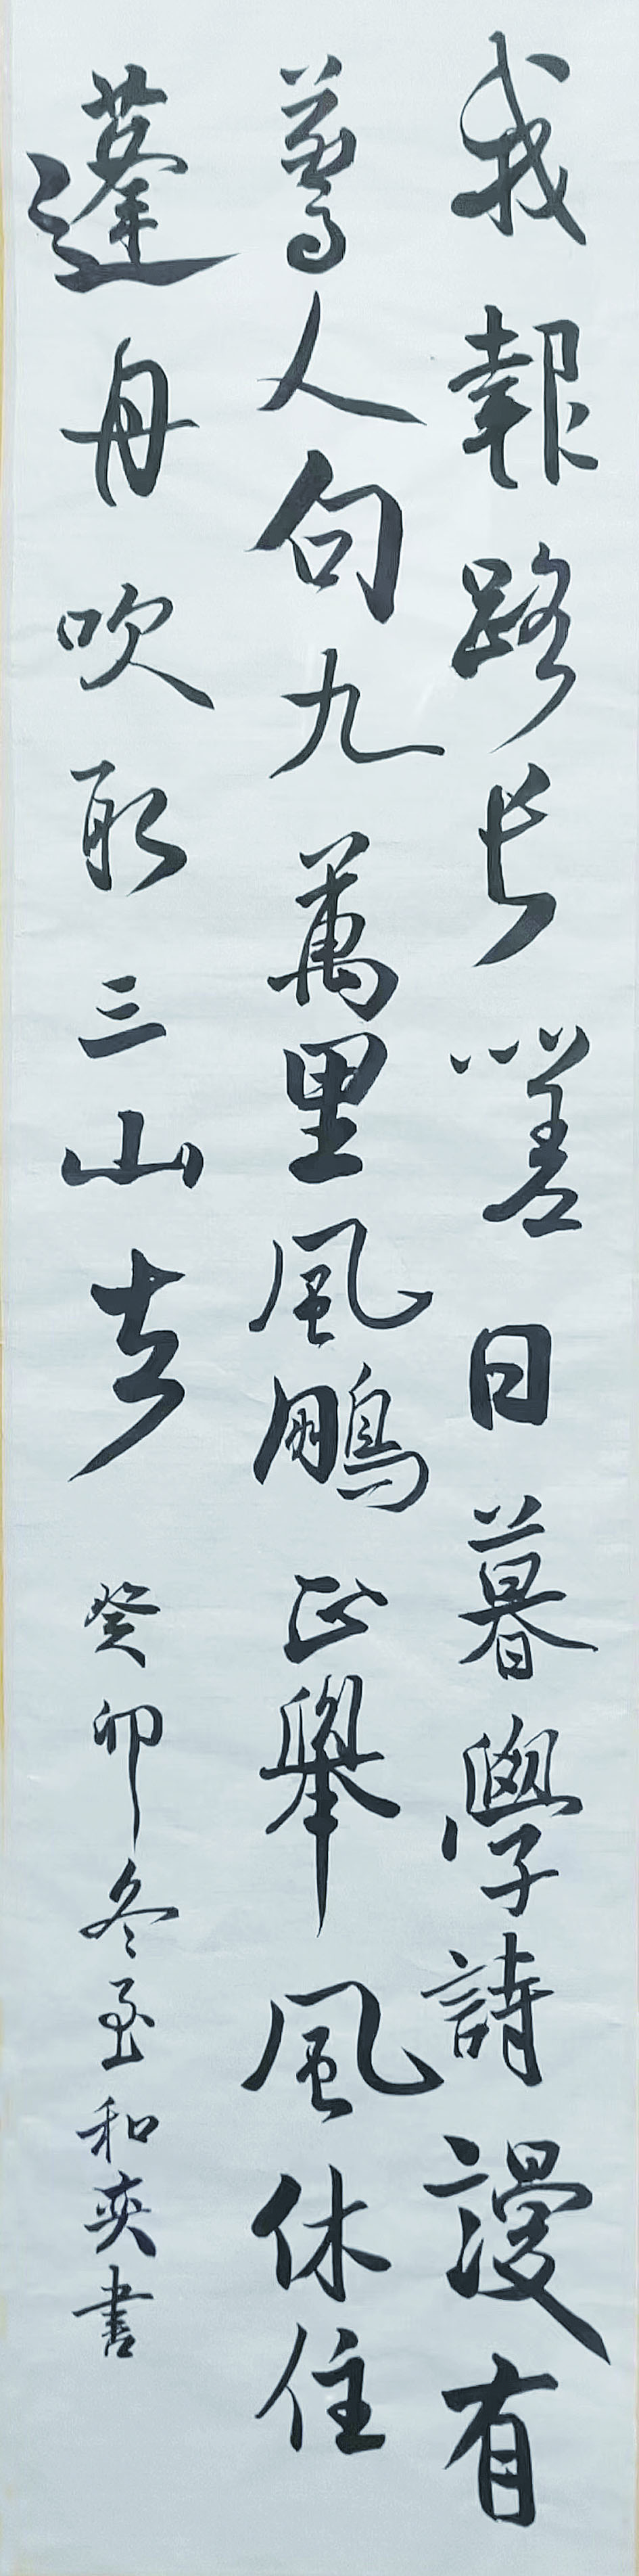 我報路長嗟日暮學詩謾有
驚人句九萬里風鵬正舉風休住
蓬舟吹取三山去 癸卯冬至和奕書